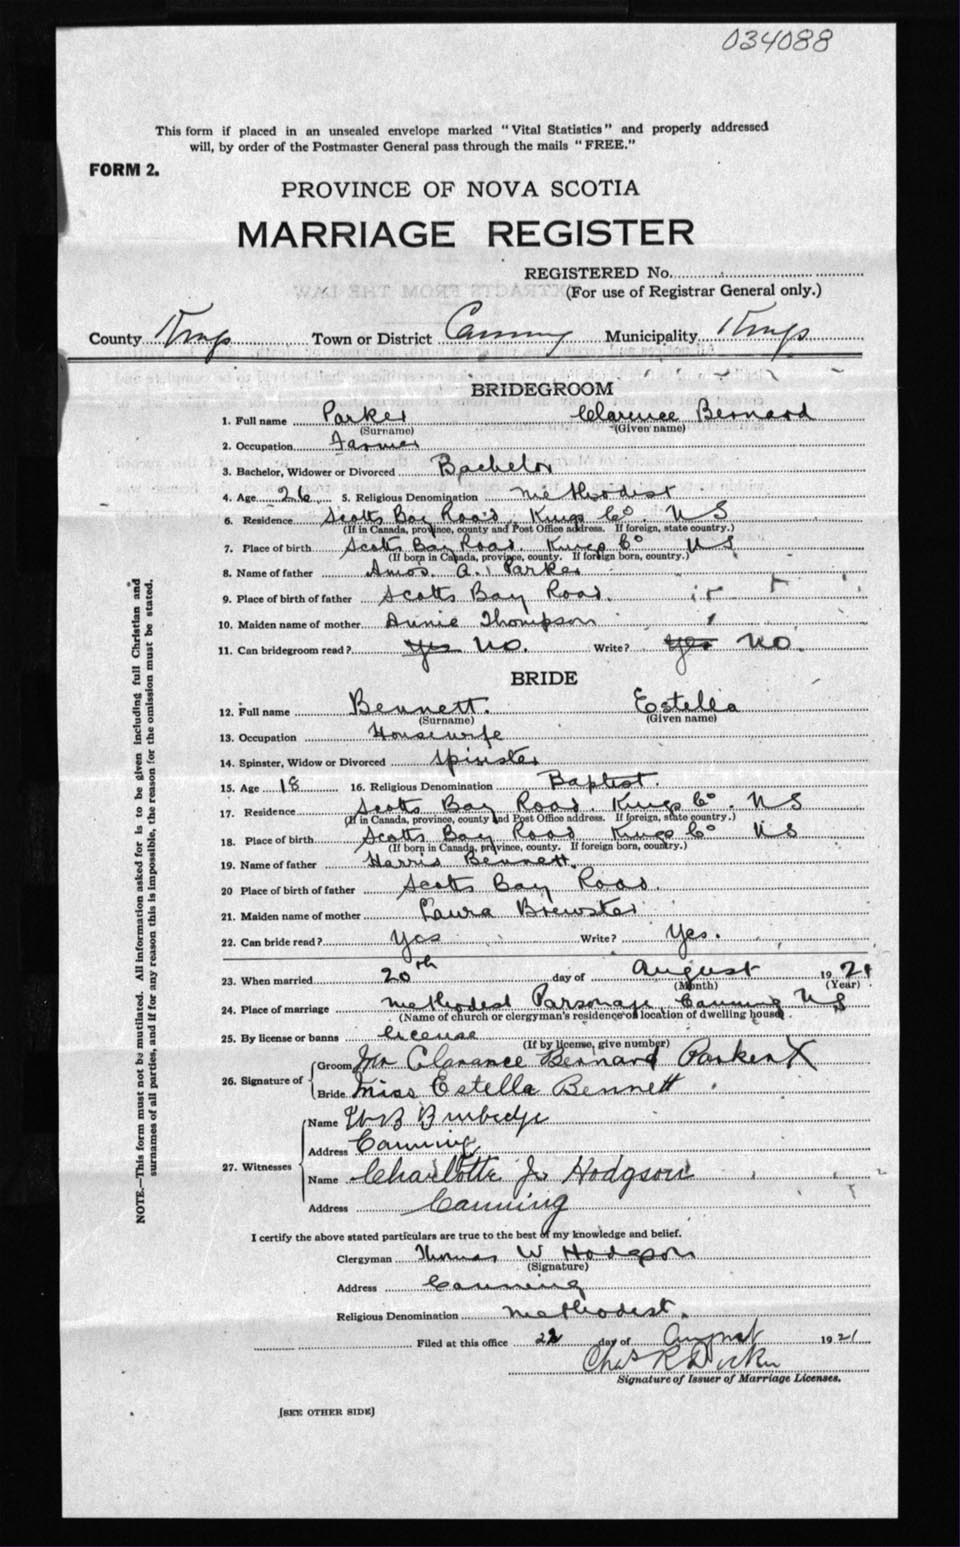 034088
This form if placed in an unsealed envelope marked "Vital Statistics" and properly addressed
will, by order of the Postmaster General pass through the mails "FREE."
FORM 2.
PROVINCE OF NOVA SCOTIA
MARRIAGE REGISTER
REGISTERED No.
(For use of Registrar General only.)
County Kings Town or District Canning Municipality Kings
BRIDEGROOM
1. Full name Parker Clarence Bernard
(Surname) (Given name)
2. Occupation Farmer
3. Bachelor, Widower or Divorced Bachelor
4. Age 26 5. Religious Denomination Methodist
6. Residence Scotts Bay Road. Kings Co. NS
(If in Canada, province, county and Post Office address. If foreign, state country.)
7. Place of birth Scotts Bay Road. Kings Co NS
(If born in Canada, province, county. If foreign born, country.)
8. Name of father Amos A. Parker
9. Place of birth of father Scotts Bay Road.
10. Maiden name of mother Annie Thompson
11. Can bridegroom read? Yes No. Write? Yes No.
BRIDE
12. Full name Bennett. Estella
(Surname) (Given name)
13. Occupation Housewife
14. Spinster, Widow or Divorced Spinster
15. Age 18 16. Religious Denomination Baptist.
17. Residence Scotts Bay Road. Kings Co. NS
(If in Canada, province, county and Post Office address. If foreign, state country.)
18. Place of birth Scotts Bay Road Kings Co NS
(If born in Canada, province, county. If foreign born, country.)
19. Name of father Harris Bennett.
20 Place of birth of father Scotts Bay Road.
21. Maiden name of mother Laura Brewster
22. Can bride read? Yes Write? Yes.
23. When married 20th day of August 1921
(Month) (Year)
24. Place of marriage Methodist Parsonage Canning NS
(Name of church or clergyman's residence or location of dwelling house)
25. By license or banns License
(If by license, give number)
26. Signature of Groom Mr Clarance Bernard Parker X
Bride Miss Estella Bennett
27. Witnesses Name
Address Canning
Name Charlotte J. Hodgson
Address Canning
I certify the above stated particulars are true to the best of my knowledge and belief.
Clergyman Thomas W Hodgson
(Signature)
Address Canning
Religious Denomination Methodist.
Filed at this office 22 day of August 1921
Chas R
Signature of Issuer of Marriage Licenses.
[SEE OTHER SIDE]
NOTE.—This form must not be mutilated. All information asked for is to be given including full Christian and
surnames of all parties, and if for any reason this is impossible, the reason for the omission must be stated.